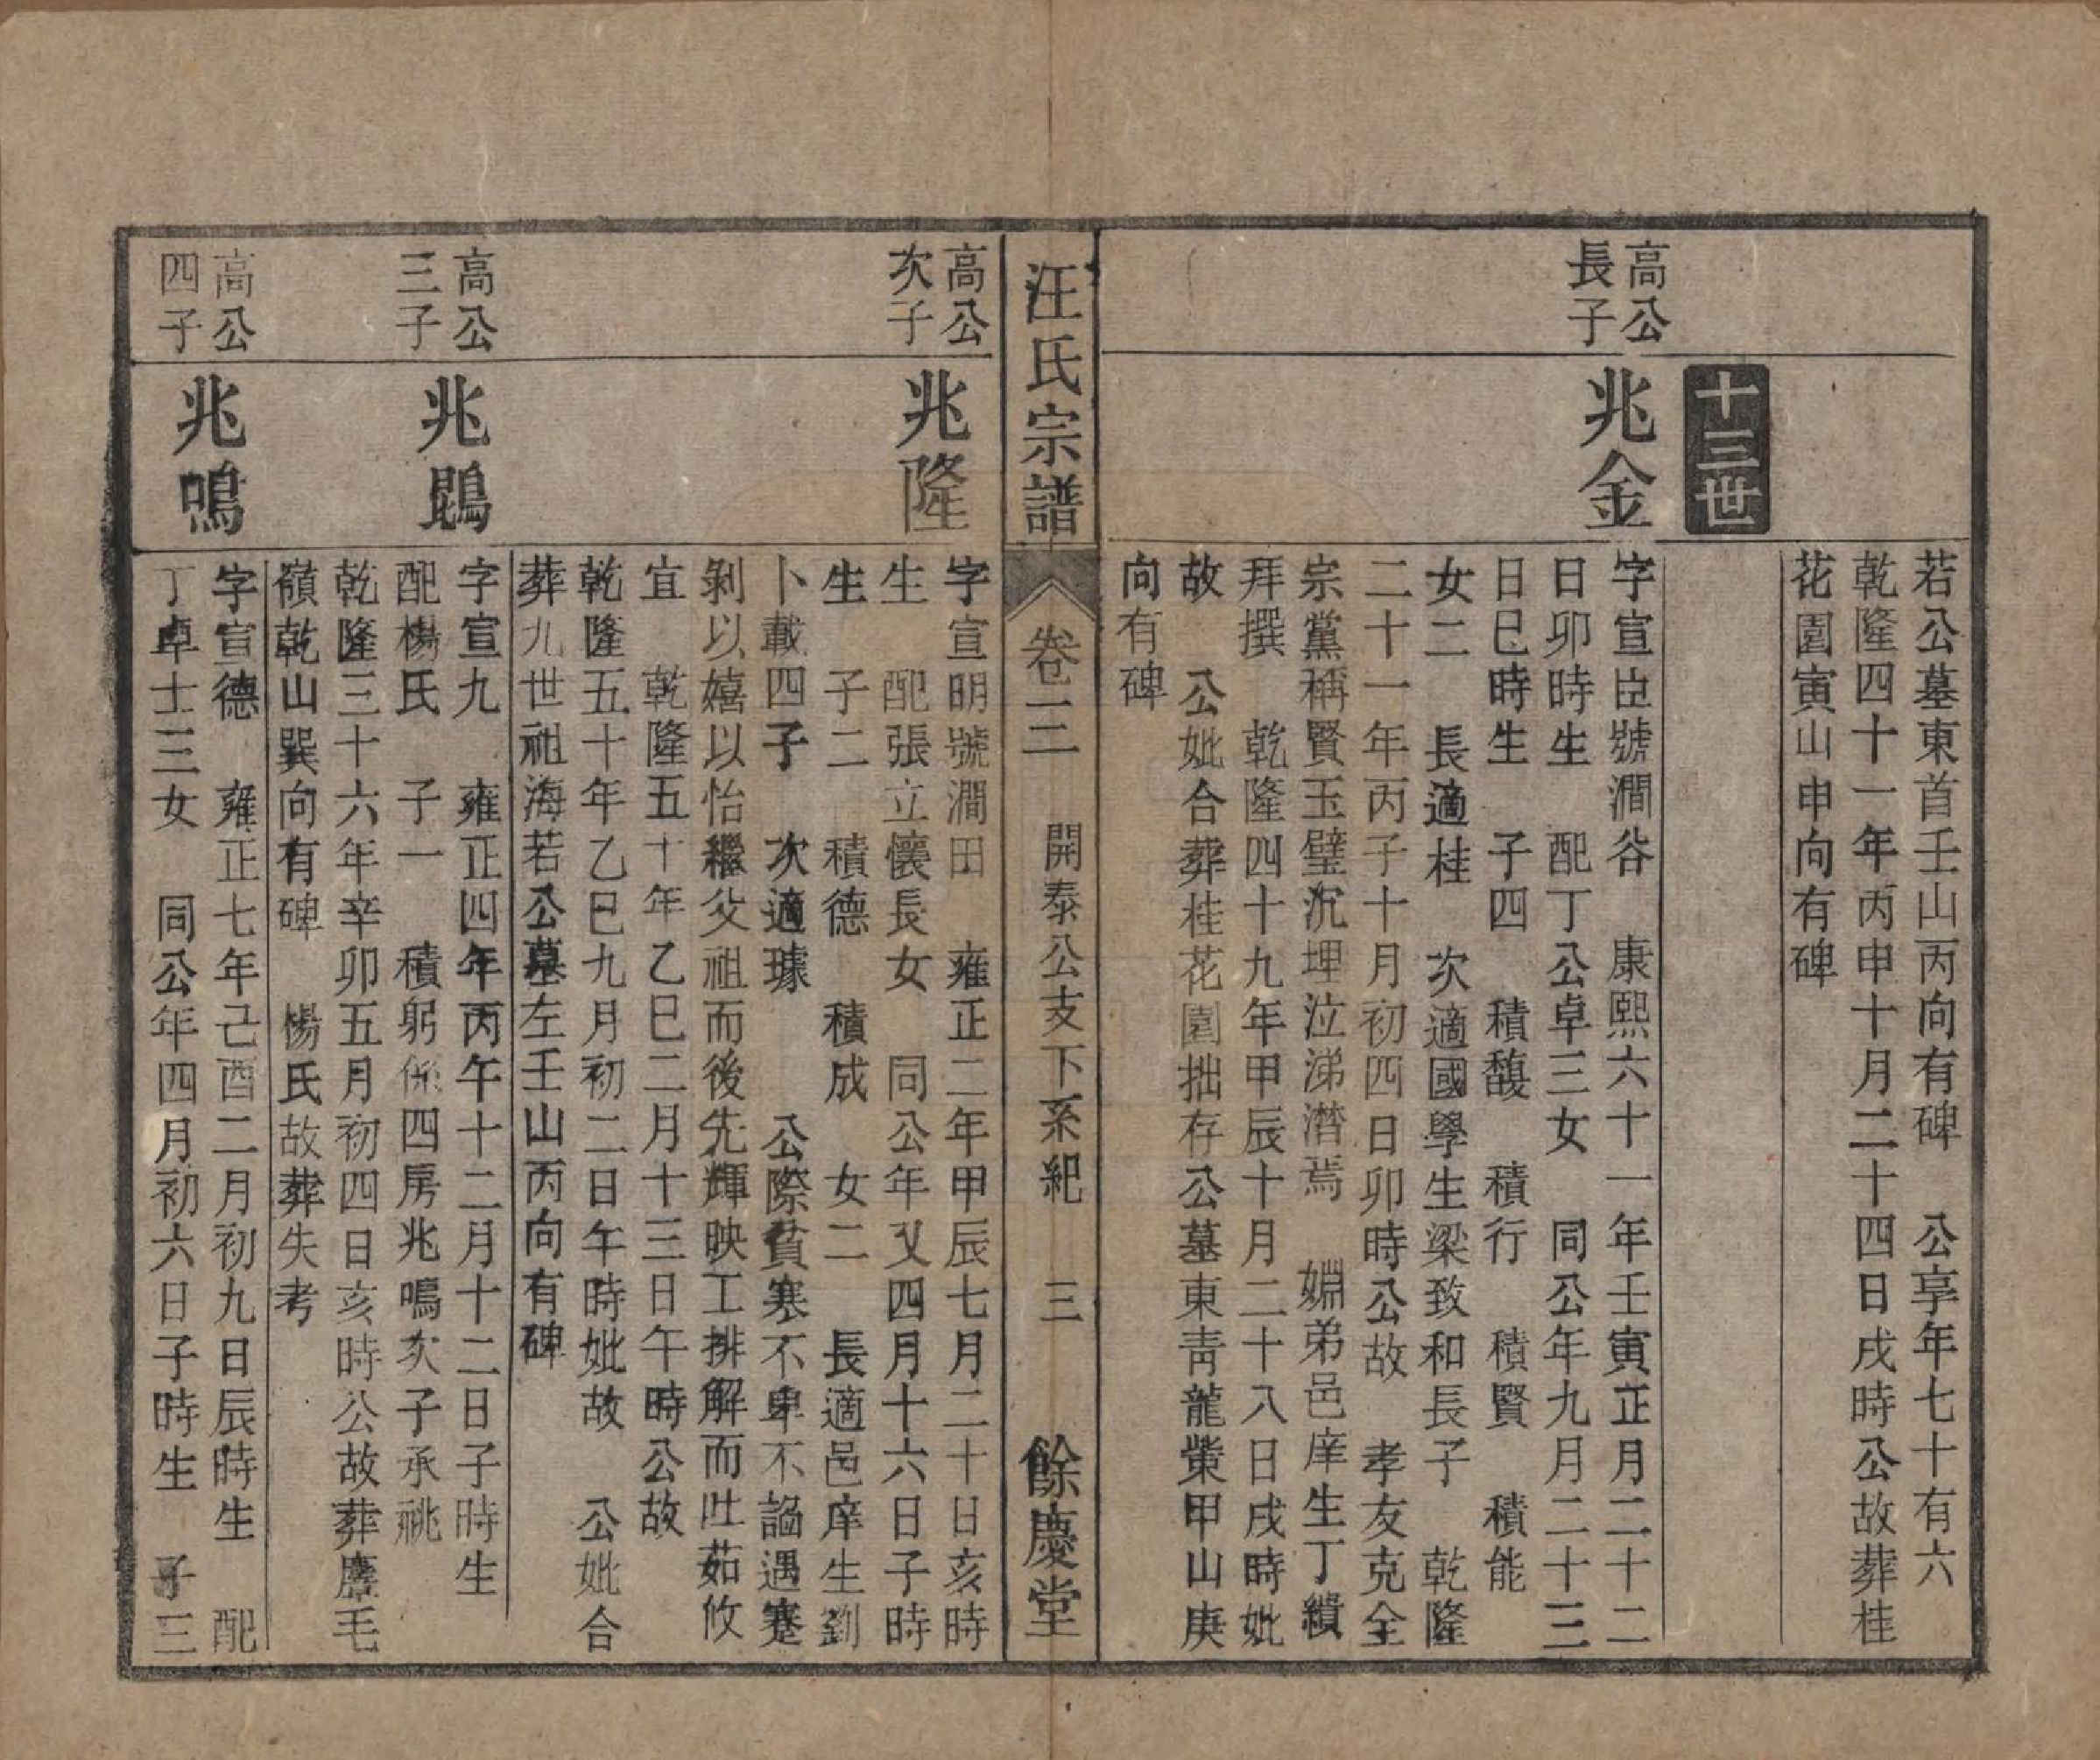 若公墓東首壬山丙向有碑　公享年七十有六
乾隆四十一年丙申十月二十四日戌時公故葬桂
花園寅山申向有碑
十三世
高公
長子
兆金
字宣臣號澗谷　康熙六十一年壬寅正月二十二
日卯時生　配丁公卓三女　同公年九月二十三
日巳時生　子四　積馥　積行　積賢　積能
女二　長適桂　次適國學生梁致和長子　乾隆
二十一年丙子十月初四日卯時公故　孝友克全
宗黨稱賢玉璧沉埋泣涕潛焉　姻弟邑庠生丁纘
拜撰　乾隆四十九年甲辰十月二十八日戌時妣
故　公妣合葬桂花園拙存公墓東青龍嘴甲山庚
向有碑
汪氏宗譜
卷二　開泰公支下系紀　三　餘慶堂
高公
次子
兆隆
字宣明號澗田　雍正二年甲辰七月二十日亥時
生　配張立懷長女　同公年又四月十六日子時
生　子二　積德　積成　女二　長適邑庠生劉
卜載四子　次適璩　公際貧寒不卑不謟遇蹇
剝以嬉以怡繼父祖而後先輝映工排解而吐茹攸
宜　乾隆五十年乙巳二月十三日午時公故
乾隆五十年乙巳九月初二日午時妣故　公妣合
葬九世祖海若公墓左壬山丙向有碑
高公
三子
兆鵾
字宣九　雍正四年丙午十二月十二日子時生
配楊氏　子一　積躬係四房兆鳴次子承祧
乾隆三十六年辛卯五月初四日亥時公故葬麞毛
嶺乾山巽向有碑　楊氏故葬失考
高公
四子
兆鳴
字宣德　雍正七年己酉二月初九日辰時生　配
丁卓士三女　同公年四月初六日子時生　子三